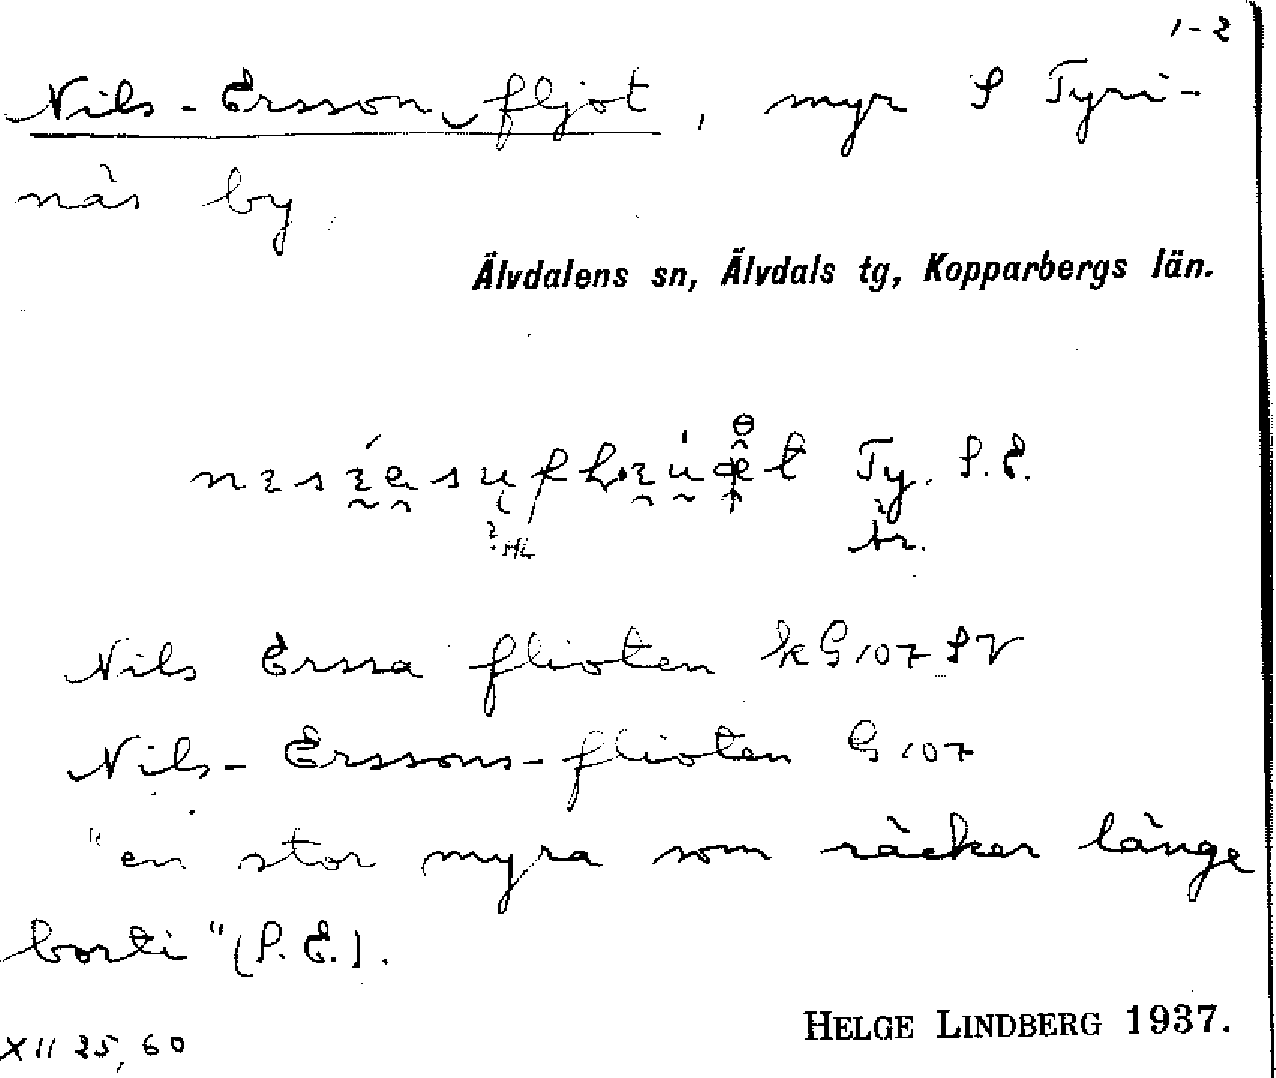 1-2
Nils-Ersson‿fljot, myr S Tyri-
näs by.
Älvdalens sn, Älvdals tg, Kopparbergs län.
Ty. S.E.
är.
?HL
Nils Erssa flioten kG107 SV
Nils-Erssons-flioten G107
"en stor myra som räcker länge
borti" (S.E.).
HELGE LINDBERG 1937.
XII 25, 60